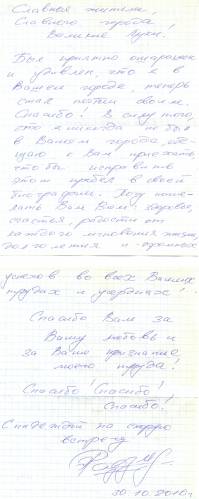 Славные жители,
Славного города
Великие Луки!
Был приятно ошарашен
и удивлён, что я в
Вашем городе, теперь
стал почти своим.
Спасибо! В силу того,
что я никогда не был
в Вашем городе, обе-
щаю к Вам приехать,
чтобы исправить
этот пробел в своей
биографии. Хочу поже-
лать Вам Всем здоровья,
счастья, радости от
каждого мгновения жизни,
долголетия и огромных
успехов во всех Ваших
трудах и усердиях!
Спасибо Вам за
Вашу любовь и
за Ваше признание
моего труда!
Спасибо! Спасибо!
Спасибо!
С надеждой на скорую
встречу
30.10.2010г.